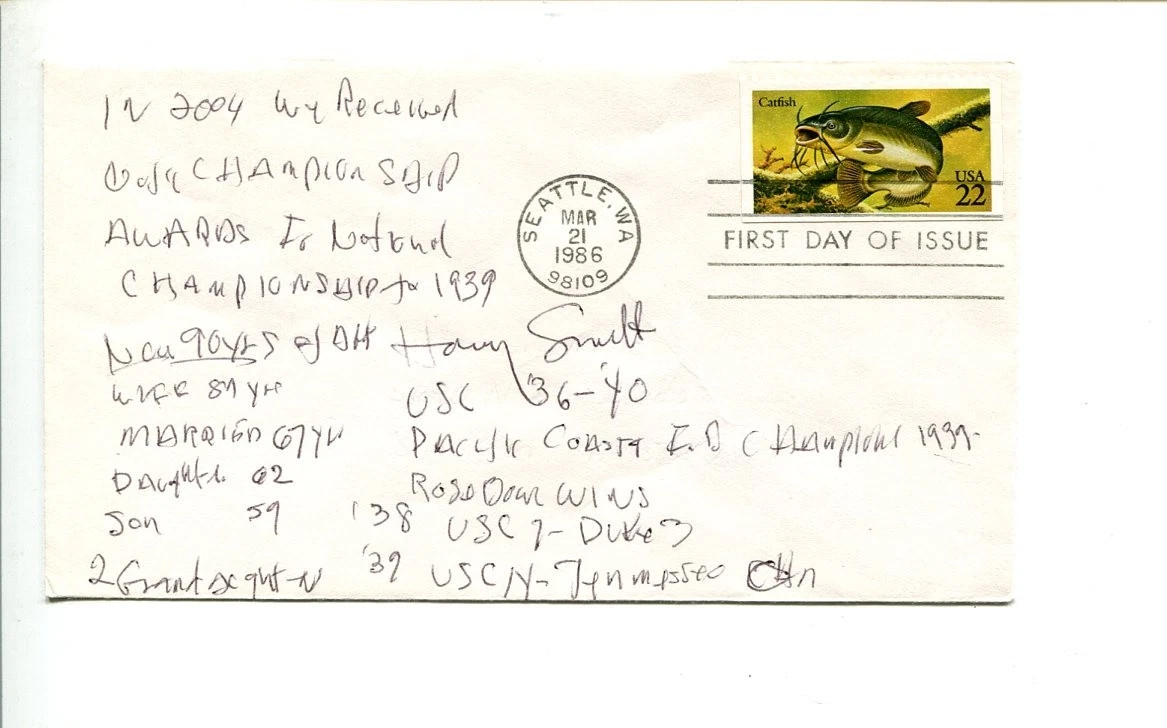 IN 2004 We Received
CHAMPIONSHIP
AWARDS For National
CHAMPIONSHIP for 1939
Now 90 yrs of
Harry Smith
WIFE 87 yr
USC '36-'40
MARRIED 67 yr
PACIFIC COAST CHAMPIONS 1939-
Daughter 62
Rose Bowl WINS
Son 59
'38 USC 7-Duke 3
2 Granddaughter
'39 USC 14-Tennessee
Catfish
USA
22
SEATTLE, WA
MAR
21
1986
98109
FIRST DAY OF ISSUE